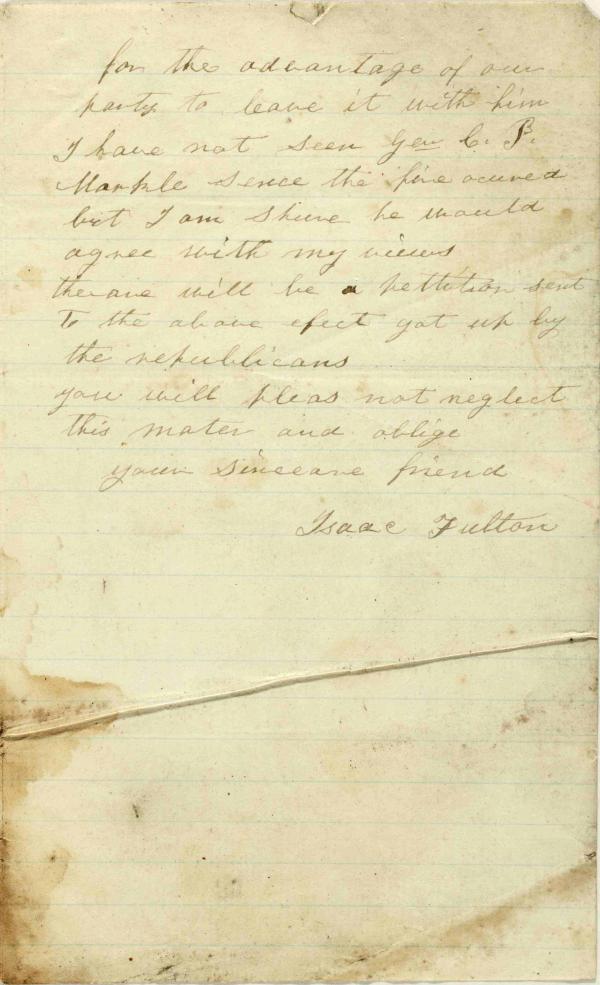 for the advantage of our
party to leave it with him
I have not seen Gen C. P.
Markle sence the fire ocured
but I am Shure he would
agree with my views
theare will be a pettition sent
To the above efect got up by
the republicans
you will pleas not neglect
this mater and oblige
your Sinceare friend
Isaac Fulton